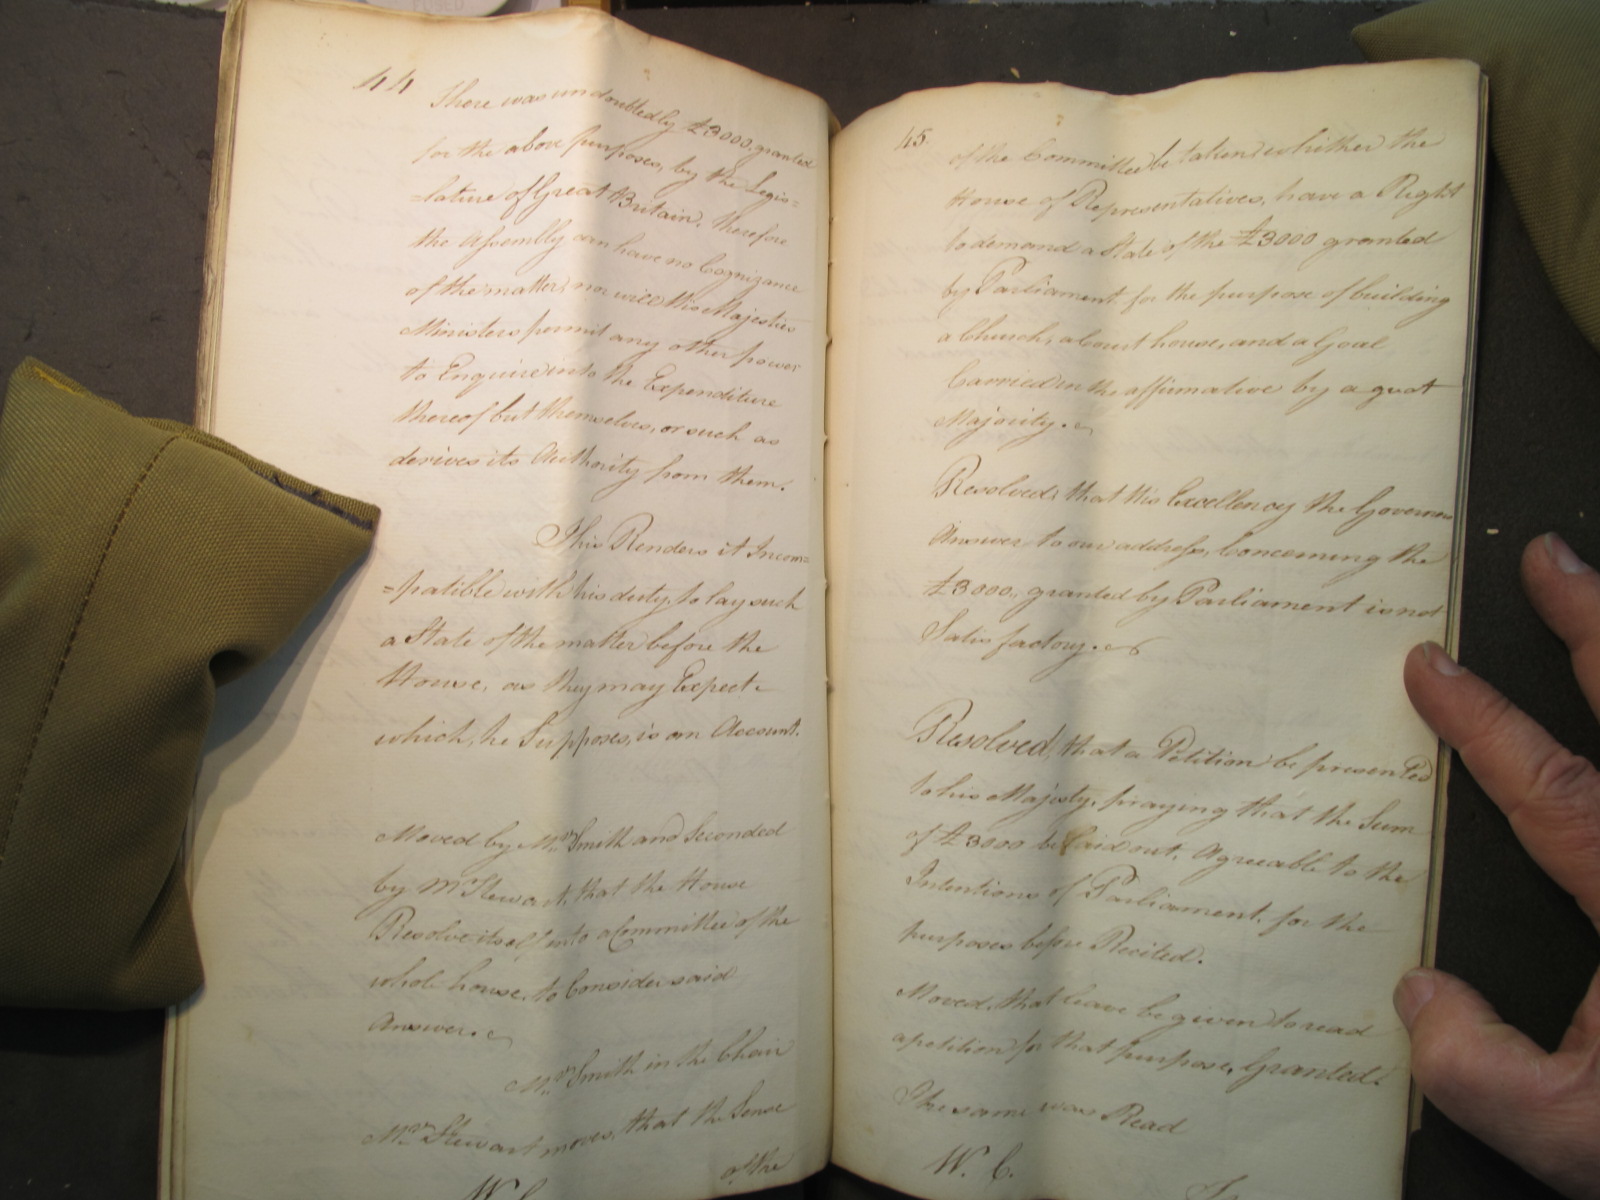 44
There was undoubtedly £3000, granted
for the above purposes, by the Legis=
=lature of Great Britain. Therefore
the Assembly can have no Cognizance
of the matter, nor will His Majesties
Ministers permit any other power
to Enquire into the Expenditure
thereof but themselves, or such as
derives its Authority from them.
This Renders it Incom=
=patible with his duty, to lay such
a State of the matter before the
House, as they may Expect
which, he Supposes, is an Account.
Moved by Mr. Smith and Seconded
by Mr Stewart, that the House
Resolve itself into a Committee of the
whole house, to Consider said
Answer.
Mr. Smith in the Chair
Mr. Stewart moves, that the Sense
of the
W. C.
45.
of the Committee be taken whither the
House of Representatives, have a Right
to demand a State of the £3000 granted
by Parliament for the purpose of building
a Church, a Court house, and a Goal
Carried in the affirmative by a great
Majority.
Resolved, that His Excellency the Governors
Answer, to our address, Concerning the
£3000, granted by Parliament is not
Satisfactory.
Resolved, that a Petition be presented
to his Majesty, praying that the Sum
of £3000 be laid out, Agreeable to the
Intentions of Parliament, for the
purposes before Recited.
Moved, that leave be given to read
a petition for that purpose, Granted.
The same was Read
W. C.